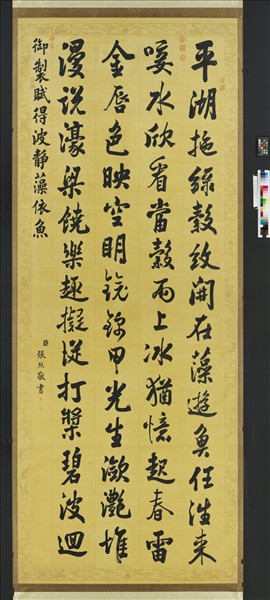 平湖拖綠縠紋開在藻遊魚任往來
唼水欣看當穀雨上冰猶憶起春雷
金唇色映空明鏡錦甲光生瀲灩堆
漫說濠梁饒樂趣擬從打槳碧波迴
御製賦得波靜藻依魚
臣張照敬書